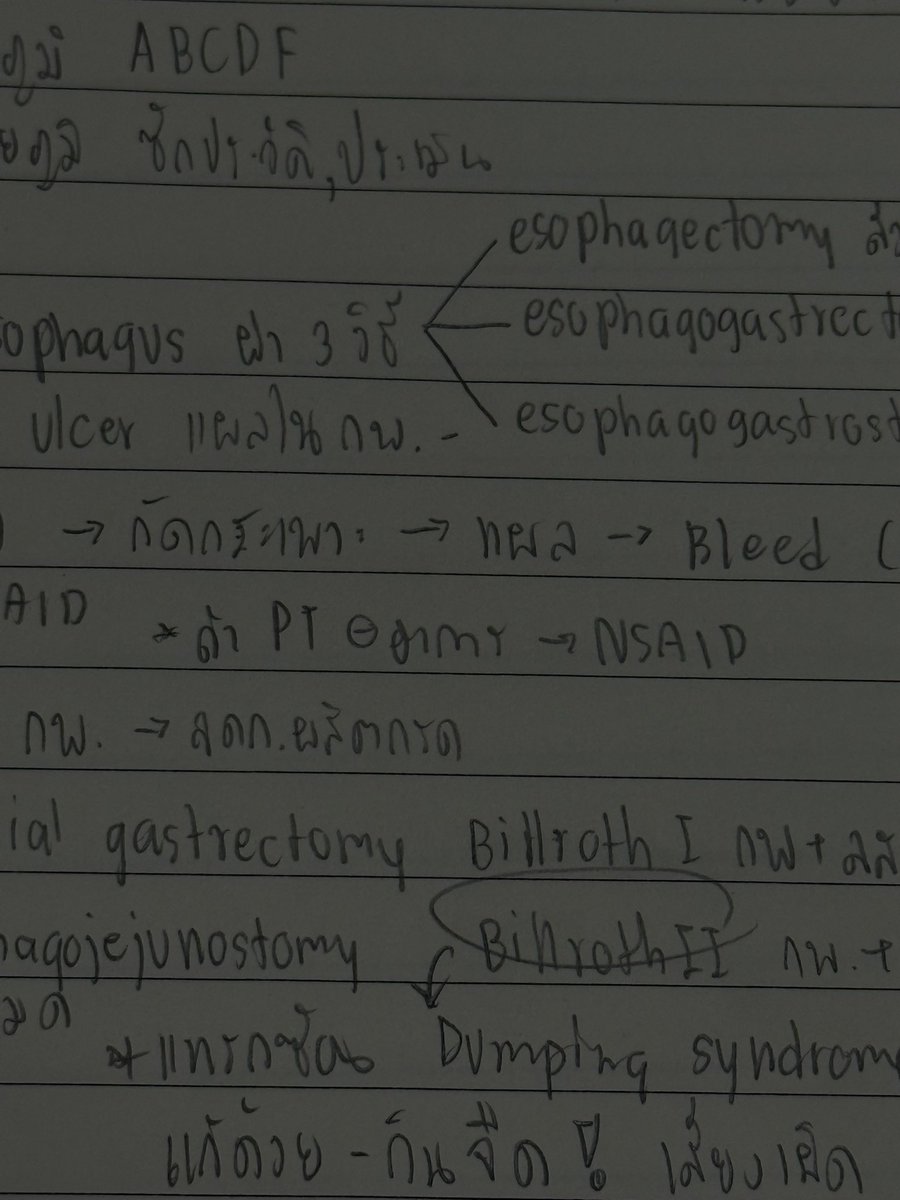 ภูมิ ABCDF
ยภูมิ ซักประวัติ, ประเมิน
esophagectomy
ophagus ผ่า 3 วิธี
esophagogastrect
ulcer แผลใน กพ. -
esophagogastrost
→ กัดกระเพาะ → แผล → Bleed (
AID * ถ้า PT ⊖ อาการ → NSAID
กพ. → ลดก.ผลิตกรด
ial gastrectomy Billroth I กพ + ลส
hagojejunostomy Billroth II กพ. +
มด
*แทรกซ้อน Dumping syndrom
แก้ด้วย - กินจืด ๆ เลี่ยงเผ็ด